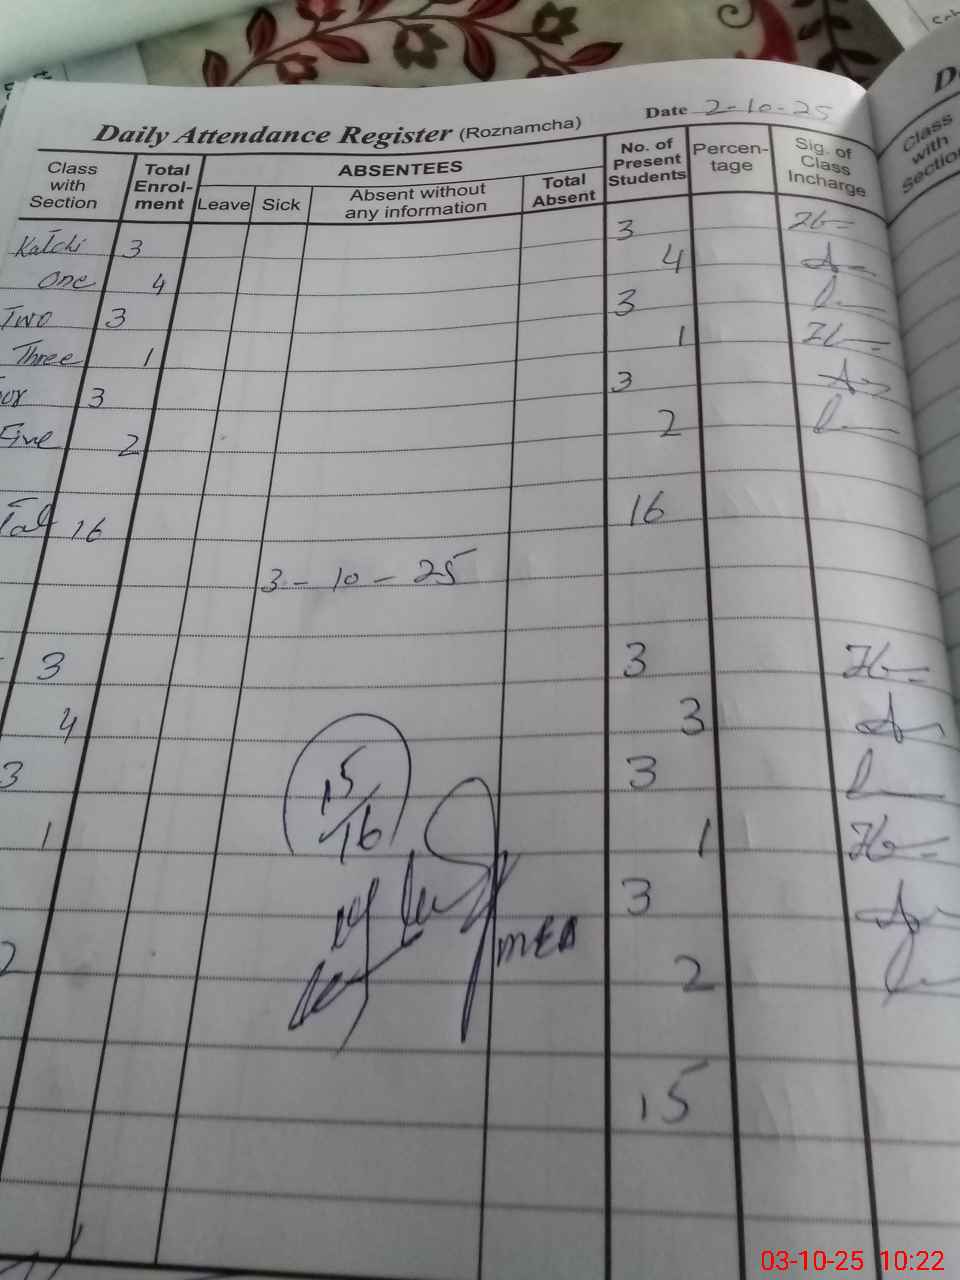 Daily Attendance Register (Roznamcha) Date 2-10-25
Class with Section Total Enrol-ment ABSENTEES Leave Sick Absent without any information Total Absent No. of Present Students Percen-tage Sig. of Class Incharge
Katchi 3 3
One 4 4
Two 3 3
Three 1 1
For 3 3
Five 2 2
Total 16 16
3-10-25
3 3
4 3
3 3
1 1
3
2 2
15
15/16
MEA
Class with Section
03-10-25 10:22